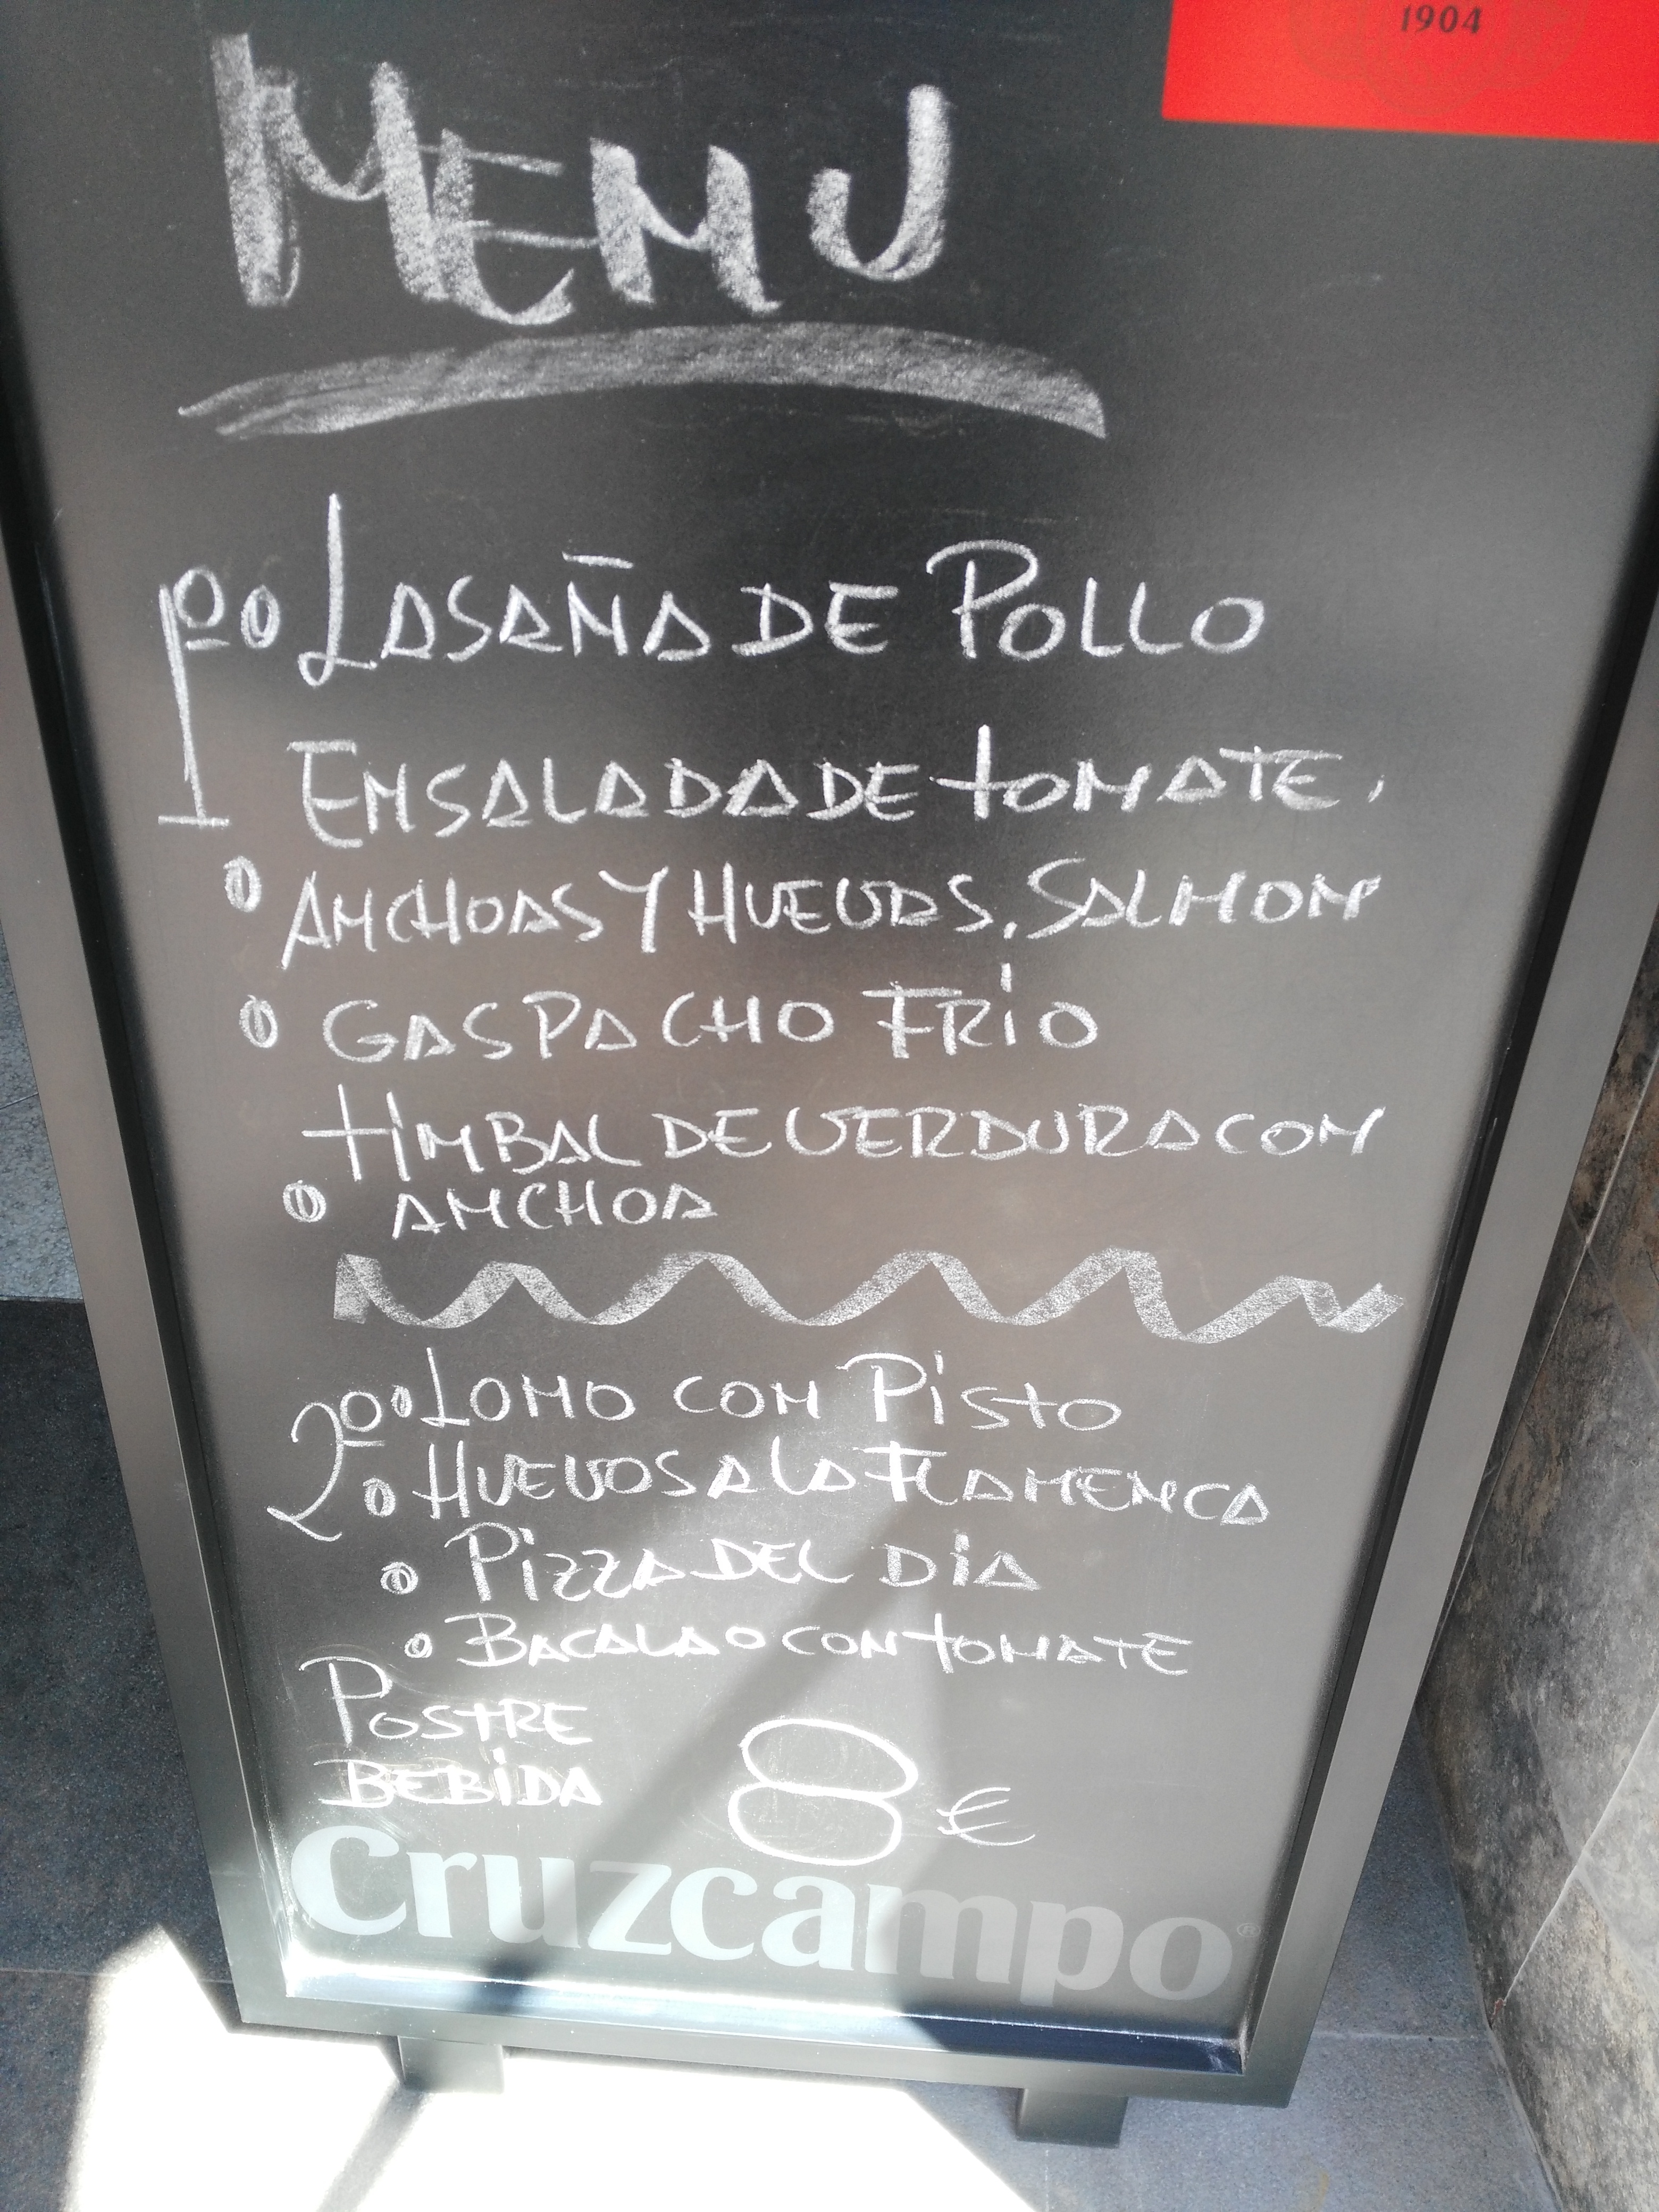 1904
MENU
1º LASAÑA DE POLLO
ENSALADA DE TOMATE,
ANCHOAS Y HUEVAS, SALMON
GASPACHO FRÍO
TIMBAL DE VERDURA CON
ANCHOA
2º LOMO CON PISTO
HUEVOS A LA FLAMENCA
PIZZA DEL DIA
BACALAO CON TOMATE
POSTRE
BEBIDA
8 €
Cruzcampo®